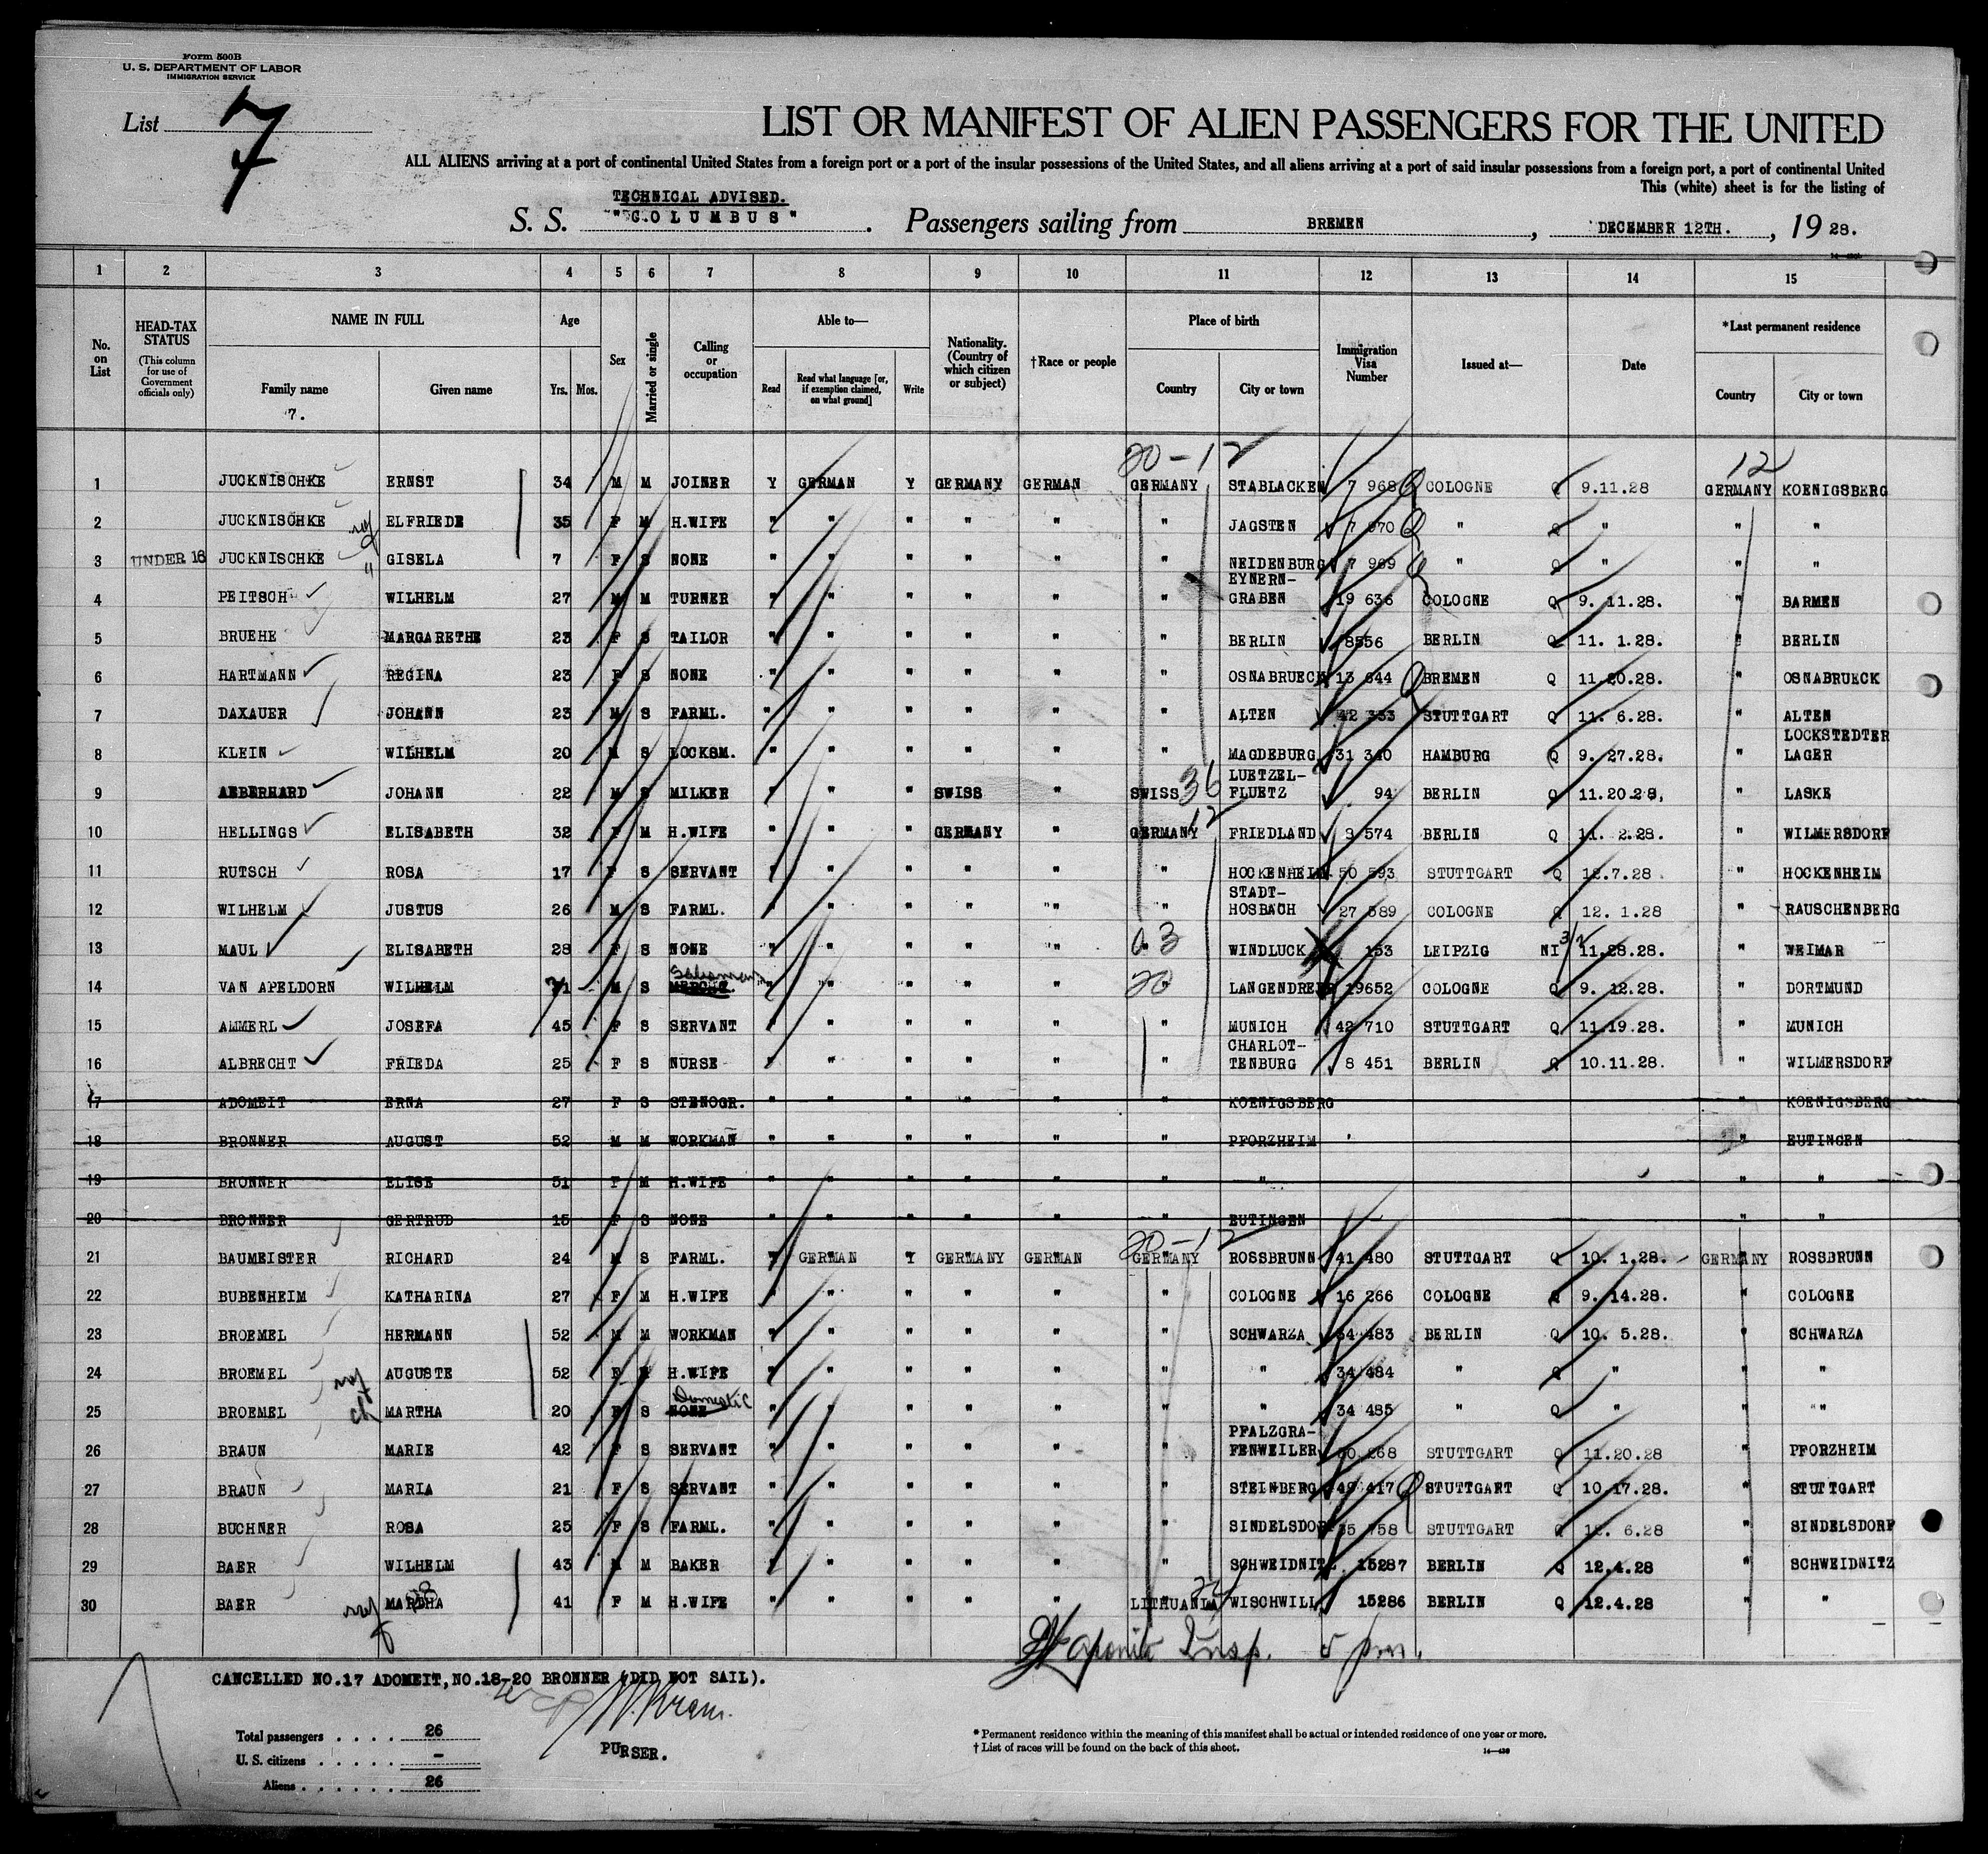 Form 500B
U. S. DEPARTMENT OF LABOR
IMMIGRATION SERVICE
List 7
LIST OR MANIFEST OF ALIEN PASSENGERS FOR THE UNITED
ALL ALIENS arriving at a port of continental United States from a foreign port or a port of the insular possessions of the United States, and all aliens arriving at a port of said insular possessions from a foreign port, a port of continental United
This (white) sheet is for the listing of
TECHNICAL ADVISED.
S. S. "COLUMBUS". Passengers sailing from BREMEN, DECEMBER 12TH., 1928.
1 2 3 4 5 6 7 8 9 10 11 12 13 14 15
No. on List
HEAD-TAX STATUS (This column for use of Government officials only)
NAME IN FULL
Family name
7.
Given name
Age
Yrs. Mos.
Sex
Married or single
Calling or occupation
Able to—
Read
Read what language [or, if exemption claimed, on what ground]
Write
Nationality. (Country of which citizen or subject)
†Race or people
Place of birth
Country
City or town
Immigration Visa Number
Issued at—
Date
*Last permanent residence
Country
City or town
20-12 12
1 JUCKNISCHKE ERNST 34 M M JOINER Y GERMAN Y GERMANY GERMAN GERMANY STABLACKEN 7 968 COLOGNE Q 9.11.28 GERMANY KOENIGSBERG
2 JUCKNISCHKE ELFRIEDE 35 F M H.WIFE " " " " " " JAGSTEN 7 970 " Q " " "
3 UNDER 16 JUCKNISCHKE GISELA 7 F S NONE " " " " " " NEIDENBURG 7 969 " Q " " "
4 PEITSCH WILHELM 27 M M TURNER " " " " " " EYNERN-GRABEN 19 636 COLOGNE Q 9. 11.28. " BARMEN
5 BRUEHE MARGARETHE 23 F S TAILOR " " " " " " BERLIN 8556 BERLIN Q 11. 1.28. " BERLIN
6 HARTMANN REGINA 23 F S NONE " " " " " " OSNABRUECK 13 644 BREMEN Q 11.20.28. " OSNABRUECK
7 DAXAUER JOHANN 23 M S FARML. " " " " " " ALTEN 42 333 STUTTGART Q 11. 6.28. " ALTEN
8 KLEIN WILHELM 20 M S LOCKSM. " " " " " " MAGDEBURG 31 340 HAMBURG Q 9. 27.28. " LOCKSTEDTER LAGER
9 AEBERHARD JOHANN 22 M S MILKER " " " SWISS " SWISS 36 LUETZEL-FLUETZ 94 BERLIN Q 11.20.28. " LASKE
10 HELLINGS ELISABETH 32 F M H.WIFE " " " GERMANY " GERMANY 12 FRIEDLAND 9 574 BERLIN Q 11. 2.28. " WILMERSDORF
11 RUTSCH ROSA 17 F S SERVANT " " " " " " HOCKENHEIM 50 593 STUTTGART Q 12.7.28 " HOCKENHEIM
12 WILHELM JUSTUS 26 M S FARML. " " " " " " STADT-HOSBACH 27 589 COLOGNE Q 12. 1.28 " RAUSCHENBERG
13 MAUL ELISABETH 28 F S NONE " " " " " WINDLUCK 153 LEIPZIG NI 3/2 11.28.28. " WEIMAR
14 VAN APELDORN WILHELM 31 M S MERCHT. Salesman " " " " " 20 LANGENDREER 19652 COLOGNE Q 9. 12.28. " DORTMUND
15 AMMERL JOSEFA 45 F S SERVANT " " " " " " MUNICH 42 710 STUTTGART Q 11.19.28. " MUNICH
16 ALBRECHT FRIEDA 25 F S NURSE " " " " " " CHARLOT-TENBURG 8 451 BERLIN Q 10.11.28. " WILMERSDORF
17 ADOMEIT ERNA 27 F S STENOGR. " " " " " " KOENIGSBERG " KOENIGSBERG
18 BRONNER AUGUST 52 M M WORKMAN " " " " " " PFORZHEIM " EUTINGEN
19 BRONNER ELISE 51 F M H.WIFE " " " " " " " " "
20 BRONNER GERTRUD 15 F S NONE " " " " " " EUTINGEN " "
20-12
21 BAUMEISTER RICHARD 24 M S FARML. Y GERMAN Y GERMANY GERMAN GERMANY ROSSBRUNN 41 480 STUTTGART Q 10. 1.28. GERMANY ROSSBRUNN
22 BUBENHEIM KATHARINA 27 F M H.WIFE " " " " " " COLOGNE 16 266 COLOGNE Q 9. 14.28. " COLOGNE
23 BROEMEL HERMANN 52 M M WORKMAN " " " " " " SCHWARZA 34 483 BERLIN Q 10. 5.28. " SCHWARZA
24 BROEMEL AUGUSTE 52 F M H.WIFE " " " " " " " 34 484 " Q " " "
25 BROEMEL ch MARTHA 20 F S NONE Domestic " " " " " " " 34 485 " Q " " "
26 BRAUN MARIE 42 F S SERVANT " " " " " " PFALZGRA-FENWEILER 50 268 STUTTGART Q 11.20.28 " PFORZHEIM
27 BRAUN MARIA 21 F S SERVANT " " " " " " STEINBERG 49 417 STUTTGART Q 10.17.28. " STUTTGART
28 BUCHNER ROSA 25 F S FARML. " " " " " " SINDELSDORF 35 758 STUTTGART Q 12. 6.28 " SINDELSDORF
29 BAER WILHELM 43 M M BAKER " " " " " " SCHWEIDNITZ 15287 BERLIN Q 12.4.28 " SCHWEIDNITZ
30 BAER MARTHA 41 F M H.WIFE " " " " " LITHUANIA 24 WISCHWILL 15286 BERLIN Q 12.4.28 " "
Insp.
CANCELLED NO.17 ADOMEIT,NO.18-20 BRONNER (DID NOT SAIL).
PURSER.
Total passengers . . . . 26
U. S. citizens . . . . . –
Aliens . . . . . . 26
* Permanent residence within the meaning of this manifest shall be actual or intended residence of one year or more.
† List of races will be found on the back of this sheet.